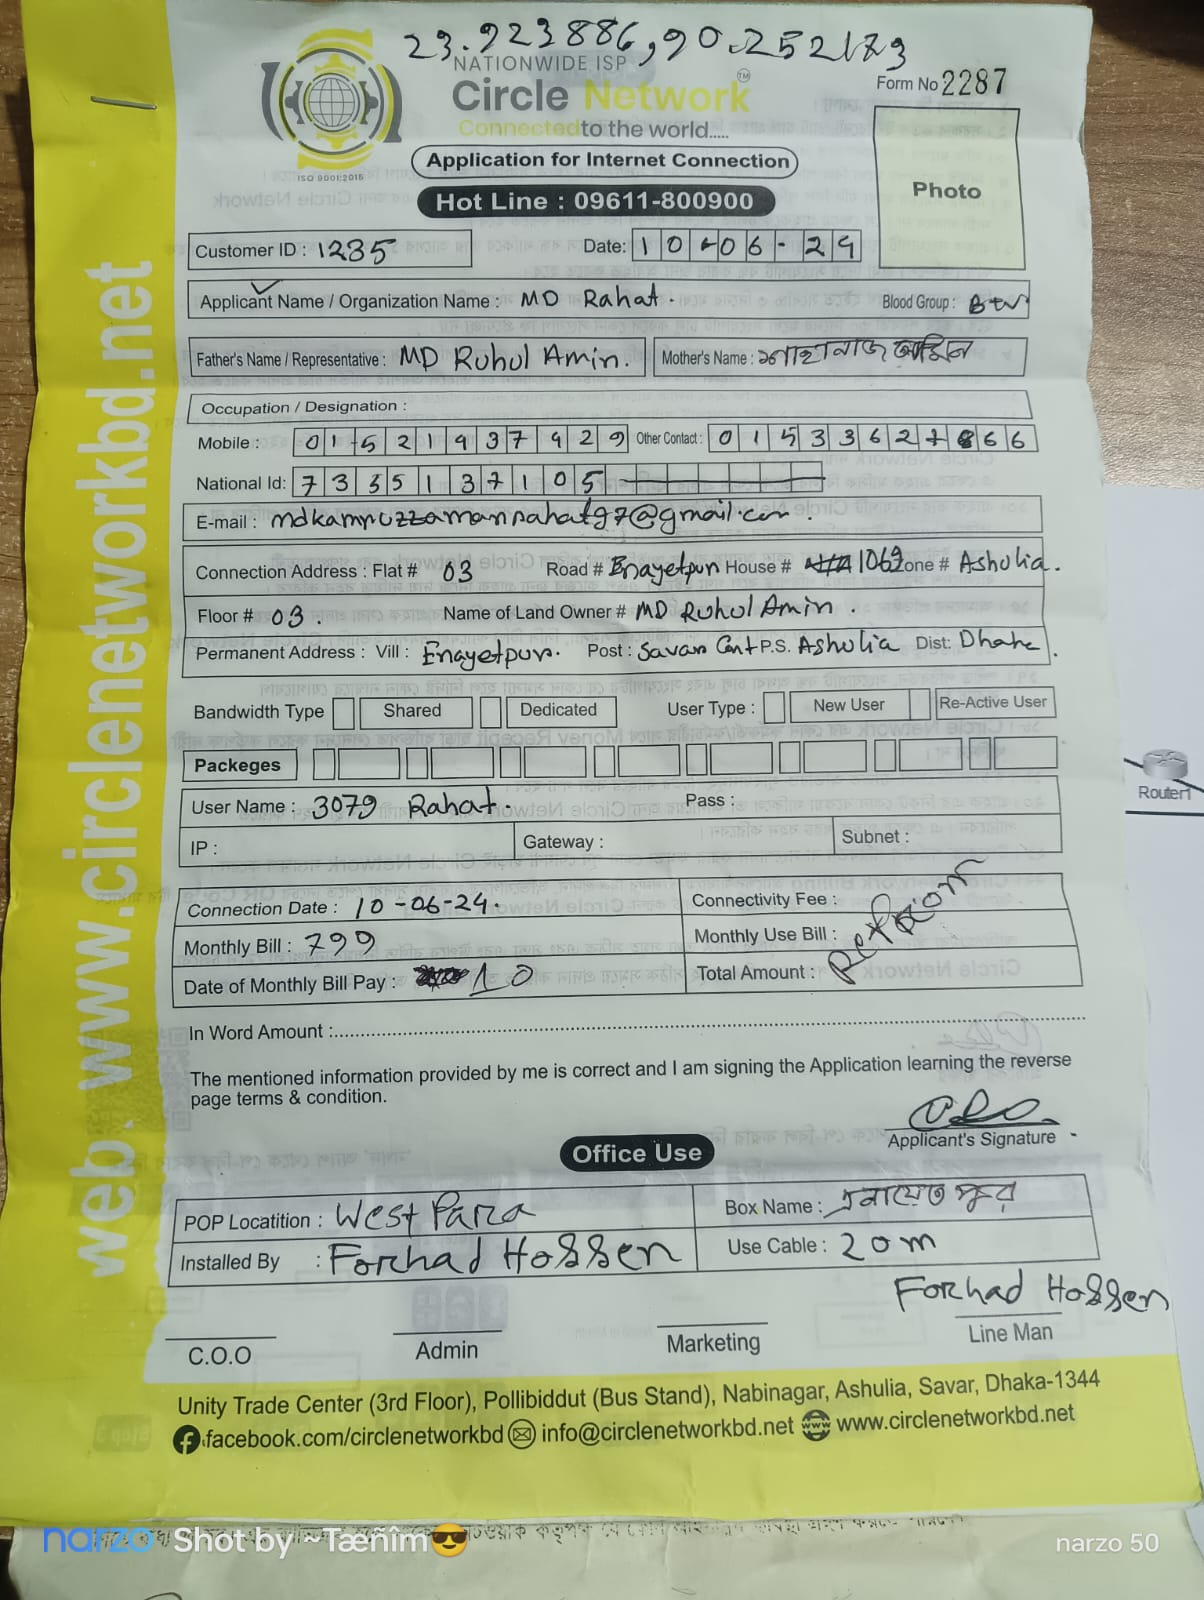 23.923886, 90.252173
NATIONWIDE ISP
Circle Network™
Connected to the world.....
ISO 9001:2015
Form No 2287
Application for Internet Connection
Hot Line : 09611-800900
Photo
Customer ID : 1235
Date: 10-06-24
Applicant Name / Organization Name : MD Rahat.
Blood Group : B+ve
Father's Name / Representative : MD Ruhul Amin.
Mother's Name : শাহানাজ আমিন
Occupation / Designation :
Mobile : 01521937429
Other Contact : 01533627866
National Id: 7335137105
E-mail : mdkamruzzamanrahat97@gmail.com.
Connection Address : Flat # 03 Road # Enayetpur House # 1069 Zone # Ashulia.
Floor # 03. Name of Land Owner # MD Ruhul Amin.
Permanent Address : Vill : Enayetpur. Post : Savar Cant P.S. Ashulia Dist: Dhaka.
Bandwidth Type Shared Dedicated User Type : New User Re-Active User
Packeges
User Name : 3079 Rahat. Pass :
IP : Gateway : Subnet :
Connection Date : 10-06-24. Connectivity Fee :
Monthly Bill : 799 Monthly Use Bill :
Date of Monthly Bill Pay : 10 Total Amount :
In Word Amount :
The mentioned information provided by me is correct and I am signing the Application learning the reverse
page terms & condition.
Applicant's Signature
Office Use
POP Locatition : West Para Box Name : এনায়েতপুর
Installed By : Forhad Hossen Use Cable : 20m
Forhad Hossen
C.O.O Admin Marketing Line Man
Unity Trade Center (3rd Floor), Pollibiddut (Bus Stand), Nabinagar, Ashulia, Savar, Dhaka-1344
facebook.com/circlenetworkbd info@circlenetworkbd.net www.circlenetworkbd.net
web: www.circlenetworkbd.net
Router1
narzo Shot by ~Tæñîm😎
narzo 50